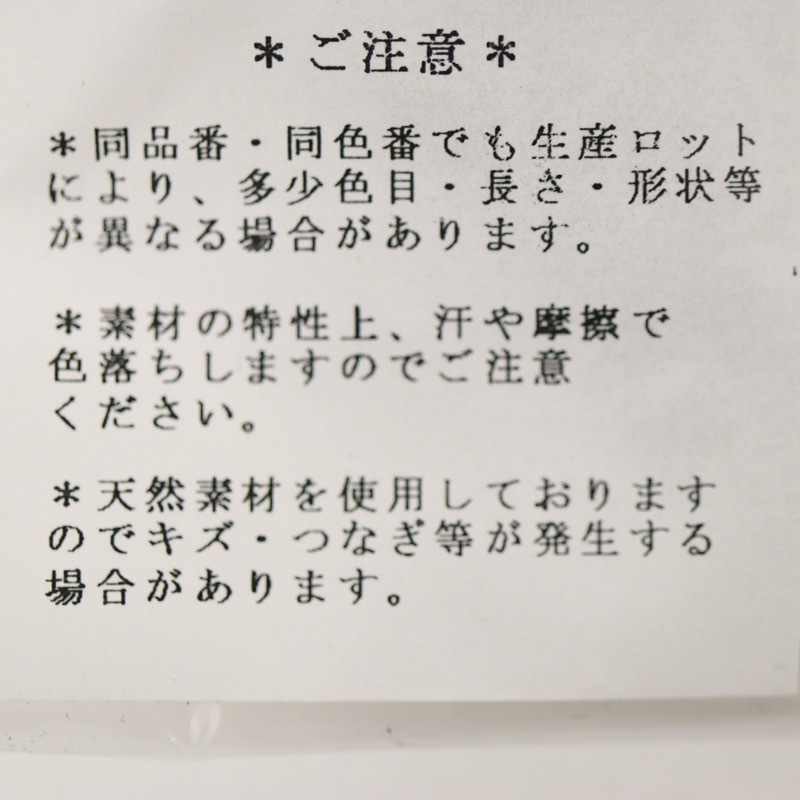 ＊ご注意＊
＊同品番・同色番でも生産ロット
により、多少色目・長さ・形状等
が異なる場合があります。
＊素材の特性上、汗や摩擦で
色落ちしますのでご注意
ください。
＊天然素材を使用しております
のでキズ・つなぎ等が発生する
場合があります。